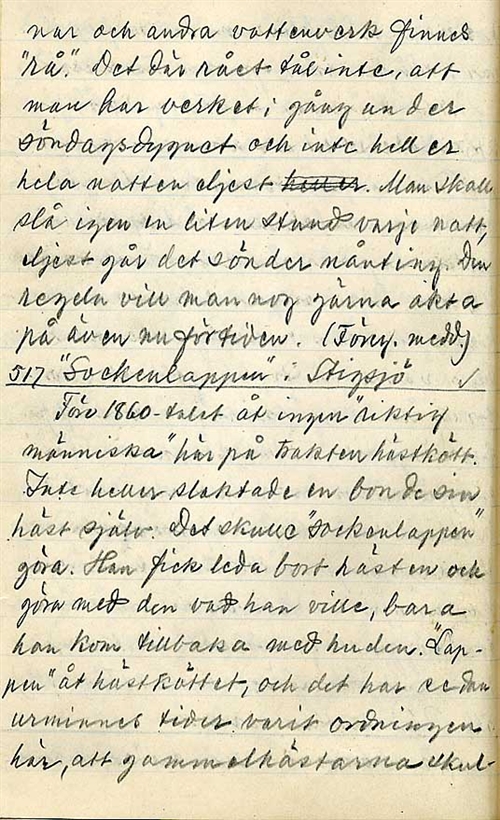 nar och andra vattenverk finnes
"rå". Det där rået tål inte, att
man har verket i gång under
söndagsdygnet och inte heller
hela natten eljest heller. Man skall
slå igen en liten stund varje natt,
eljest går det sönder nånting. Den
regeln vill man nog gärna akta
på även nu för tiden. (Föreg. medd.)
517 "Sockenlappen" i Stigsjö ✓
Före 1860-talet åt ingen "riktig
människa" här på trakten hästkött.
Inte heller slaktade en bonde sin
häst själv. Det skulle "sockenlappen"
göra. Han fick leda bort hästen och
göra med den vad han ville, bara
han kom tillbaka med huden. "Lap-
pen" åt hästköttet, och det har sedan
urminnes tider varit ordningen
här, att gammelhästarna skul-